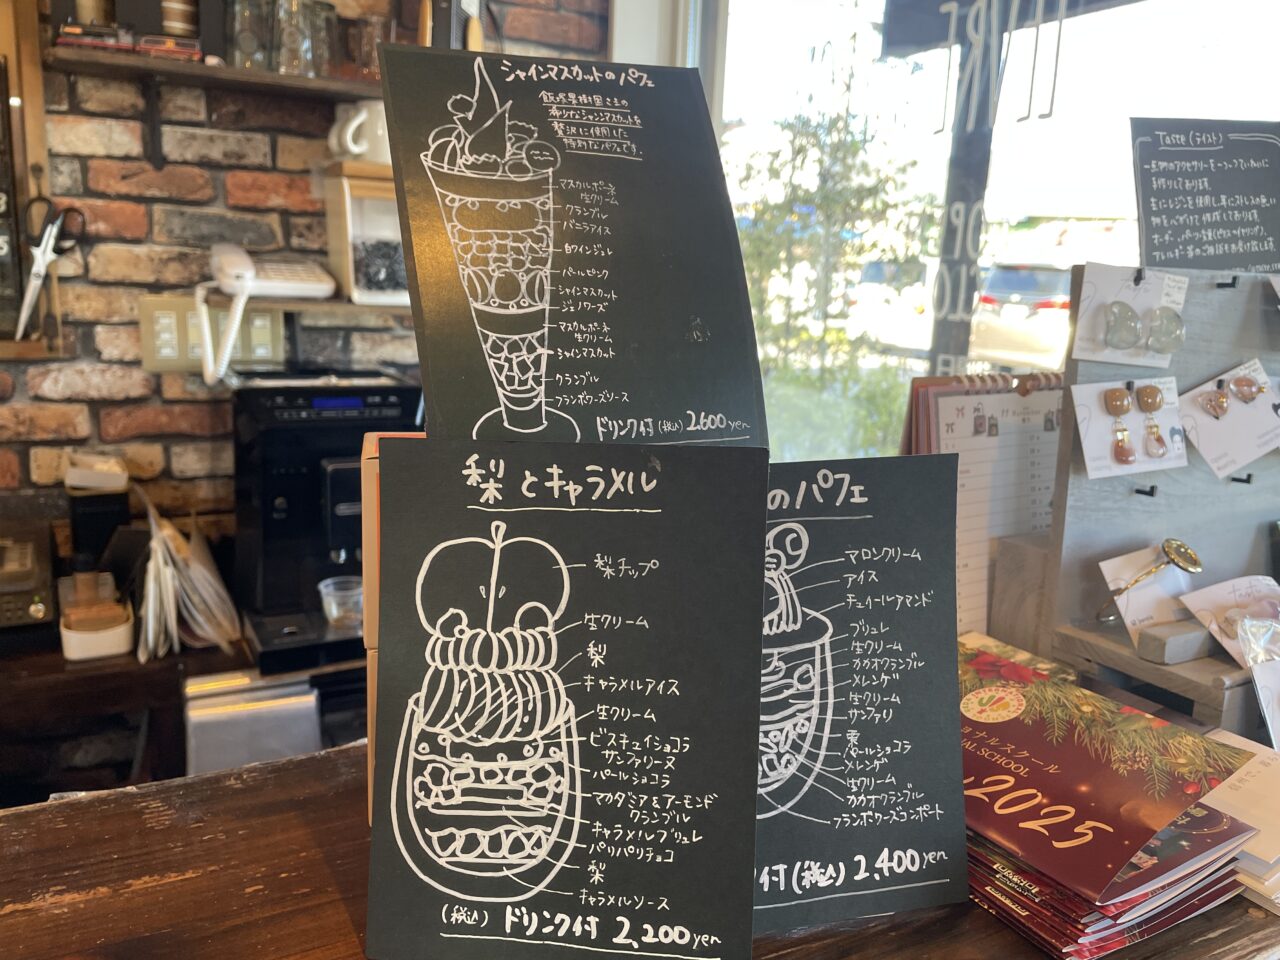 シャインマスカットのパフェ
飯塚果樹園さまの
希少なシャインマスカットを
贅沢に使用した
特別なパフェです。
マスカルポーネ
生クリーム
クランブル
バニラアイス
白ワインジュレ
パールピンク
シャインマスカット
ジェノワーズ
マスカルポーネ
生クリーム
シャインマスカット
クランブル
フランボワーズソース
ドリンク付(税込)2,600yen
梨とキャラメル
梨チップ
生クリーム
梨
キャラメルアイス
生クリーム
ビスキュイショコラ
サンファリーヌ
パールショコラ
マカダミア&アーモンド
クランブル
キャラメルブリュレ
パリパリチョコ
梨
キャラメルソース
(税込)ドリンク付 2,200yen
のパフェ
マロンクリーム
アイス
チュイールアマンド
ブリュレ
生クリーム
カカオクランブル
メレンゲ
生クリーム
サンファリ
栗
パールショコラ
メレンゲ
生クリーム
カカオクランブル
フランボワーズコンポート
付(税込)2,400yen
Taste(テイスト)
手作りしております。
オーダー、パーツ変更(ピアス→イヤリング)、
ナルスクール
AL SCHOOL
2025